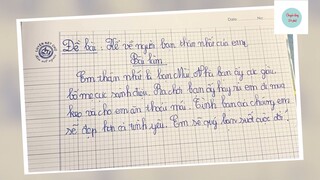 Đề bài: Kể về người bạn thân nhất của em.
Bài làm
Em thân nhất là bạn Nhi. Nhà bạn ấy cực giàu,
bố mẹ cực sành điệu. Ra chơi bạn ấy hay rủ em đi mua
kẹo rồi cho em ăn thoải mái. Tình bạn của chúng em
sẽ đẹp hơn cả tình yêu. Em sẽ quý bạn suốt cuộc đời.